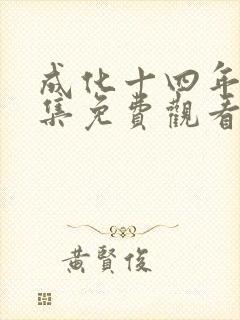 成化十四年
集免費觀看
黃賢俊